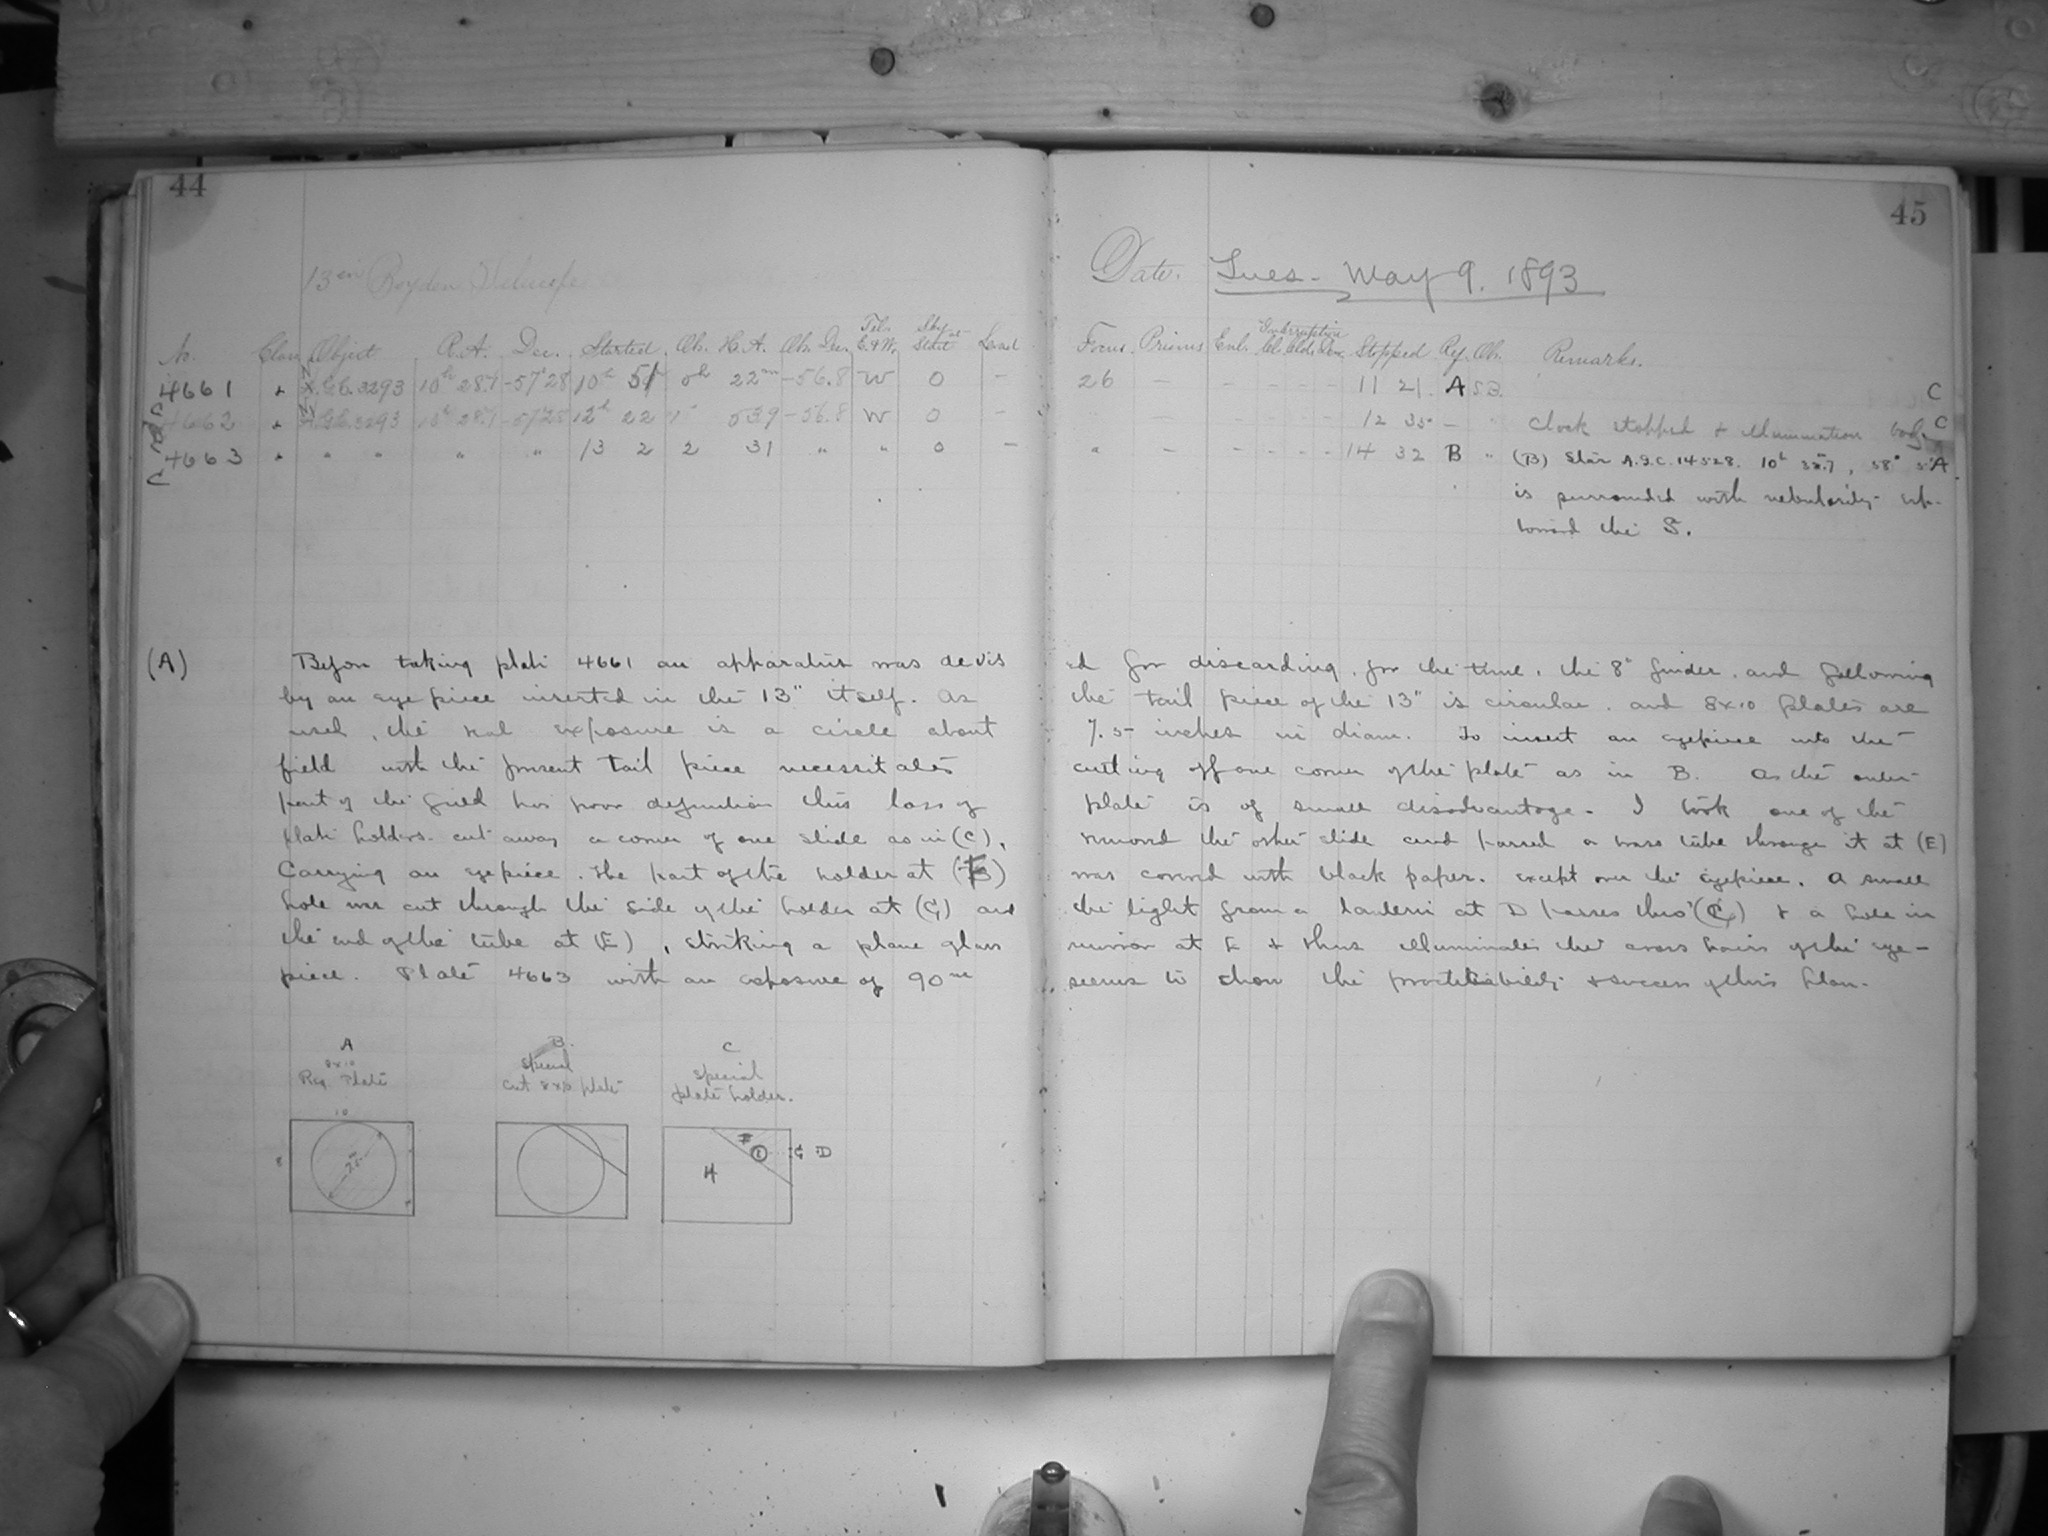 44
45
13 in Boyden Telescope
Date. Tues. May 9. 1893
No. Class Object R.A. Dec. Started Ob. H.A. Ob. Dec. Tel. E.&W. Sky at Start Level Focus Prisms Enl. Interruption Stopped Ref. Ob. Remarks.
4661 N.G.C. 3293 10h 28.1 -57°28 10h 51 0h 22m -56.8 W 0 - 26 - - - - - 11 21. A S.B. C
4662 N.G.C. 3293 10h 28.1 -57°28 12h 22 53.9 -56.8 W 0 - - - - - - 12 35 - Clock stopped & illumination bad. C
4663 " " " " 13 2 2 31 " " 0 - " - - - - - 14 32 B " (B) Star A.G.C. 14528. 10h 35.7, 58° A
is surrounded with nebulosity
toward the S.
(A) Before taking plate 4661 an apparatus was devis ed for discarding, for the time, the 8" finder, and following
by an eye piece inserted in the 13" itself. As the tail piece of the 13" is circular, and 8x10 plates are
used, the real exposure is a circle about 7.5 inches in diam. To insert an eyepiece into the
field with the present tail piece necessitates cutting off one corner of the plate as in B. As the outer
part of the field has poor definition this loss of plate is of small disadvantage. I took one of the
plate holders cut away a corner of one slide as in (C), removed the other slide and passed a brass tube through it at (E)
Carrying an eyepiece. The part of the holder at (F) was covered with black paper, except over the eyepiece. A small
hole was cut through the side of the holder at (G) and the light from a lantern at D passes thro' (G) & a hole in
the end of the tube at (E), striking a plane glass mirror at E & thus illuminates the cross hairs of the eye-
piece. Plate 4663 with an exposure of 90m seems to show the practicability & success of this plan.
A
8x10
Reg. Plate
B.
Special
cut 8x10 plate
C
Special
plate holder.
10
8
7.5
F
E
G D
H